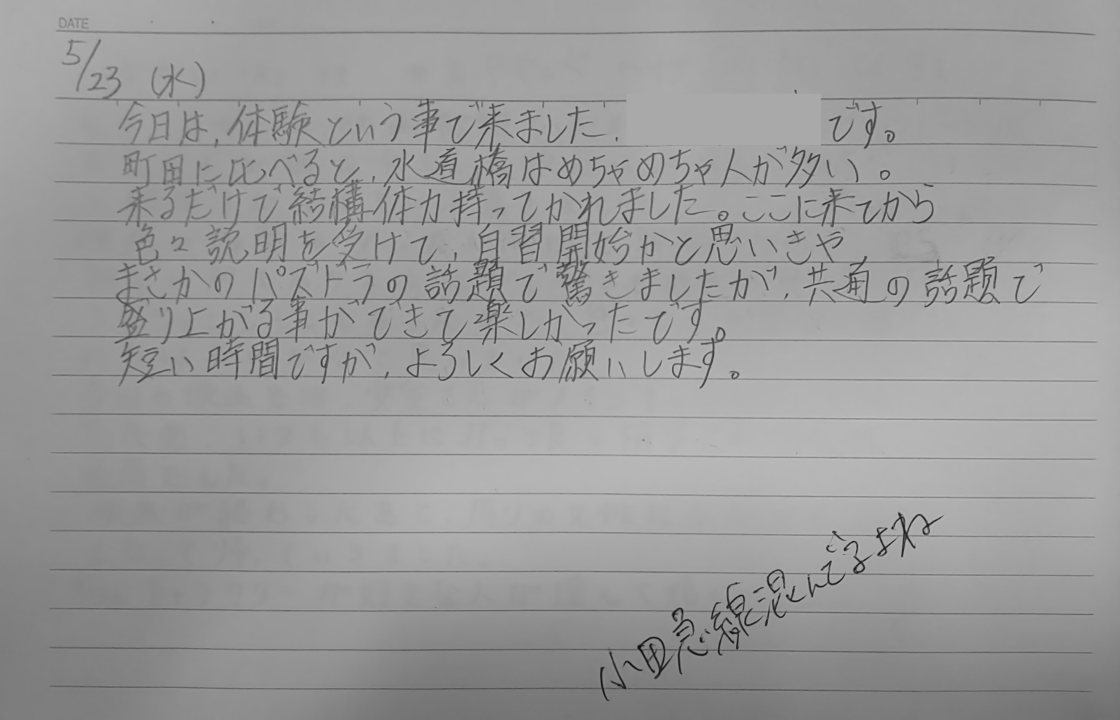 DATE
5/23 (水)
今日は、体験という事で来ました、 です。
町田に比べると、水道橋はめちゃめちゃ人が多い。
来るだけで結構体力持ってかれました。ここに来てから
色々説明を受けて、自習開始かと思いきや、
まさかのパズドラの話題で驚きましたが、共通の話題で
盛り上がる事ができて楽しかったです。
短い時間ですが、よろしくお願いします。
小田急線混んでるよね